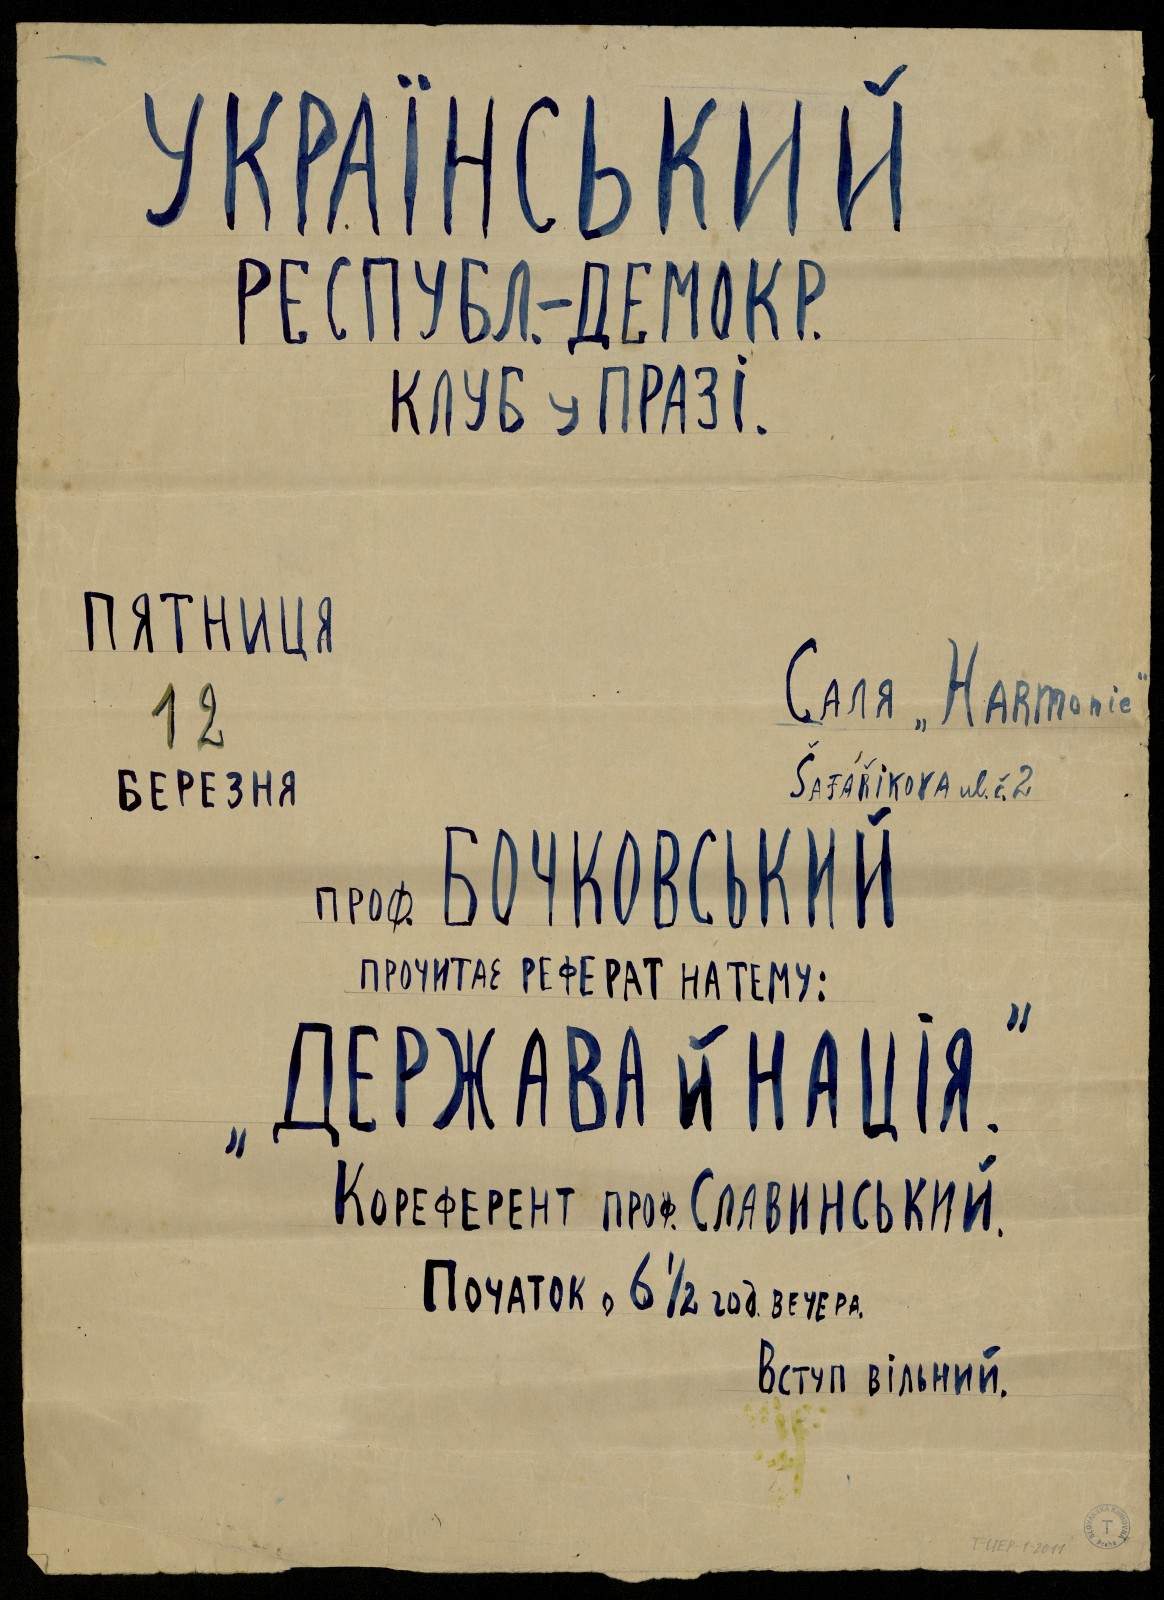 УКРАЇНСЬКИЙ
РЕСПУБЛ.-ДЕМОКР.
КЛУБ у ПРАЗІ.
ПЯТНИЦЯ
12
БЕРЕЗНЯ
Саля „Harmonie"
Šafáříkova ul. č. 2
проф. БОЧКОВСЬКИЙ
ПРОЧИТАЄ РЕФЕРАТ НА ТЕМУ:
„ДЕРЖАВА й НАЦІЯ."
Кореферент проф. Славинський.
Початок о 6 1/2 год. вечера.
Вступ вільний.
SLOVANSKÁ KNIHOVNA
T
Praha
T-UEP-1-2011